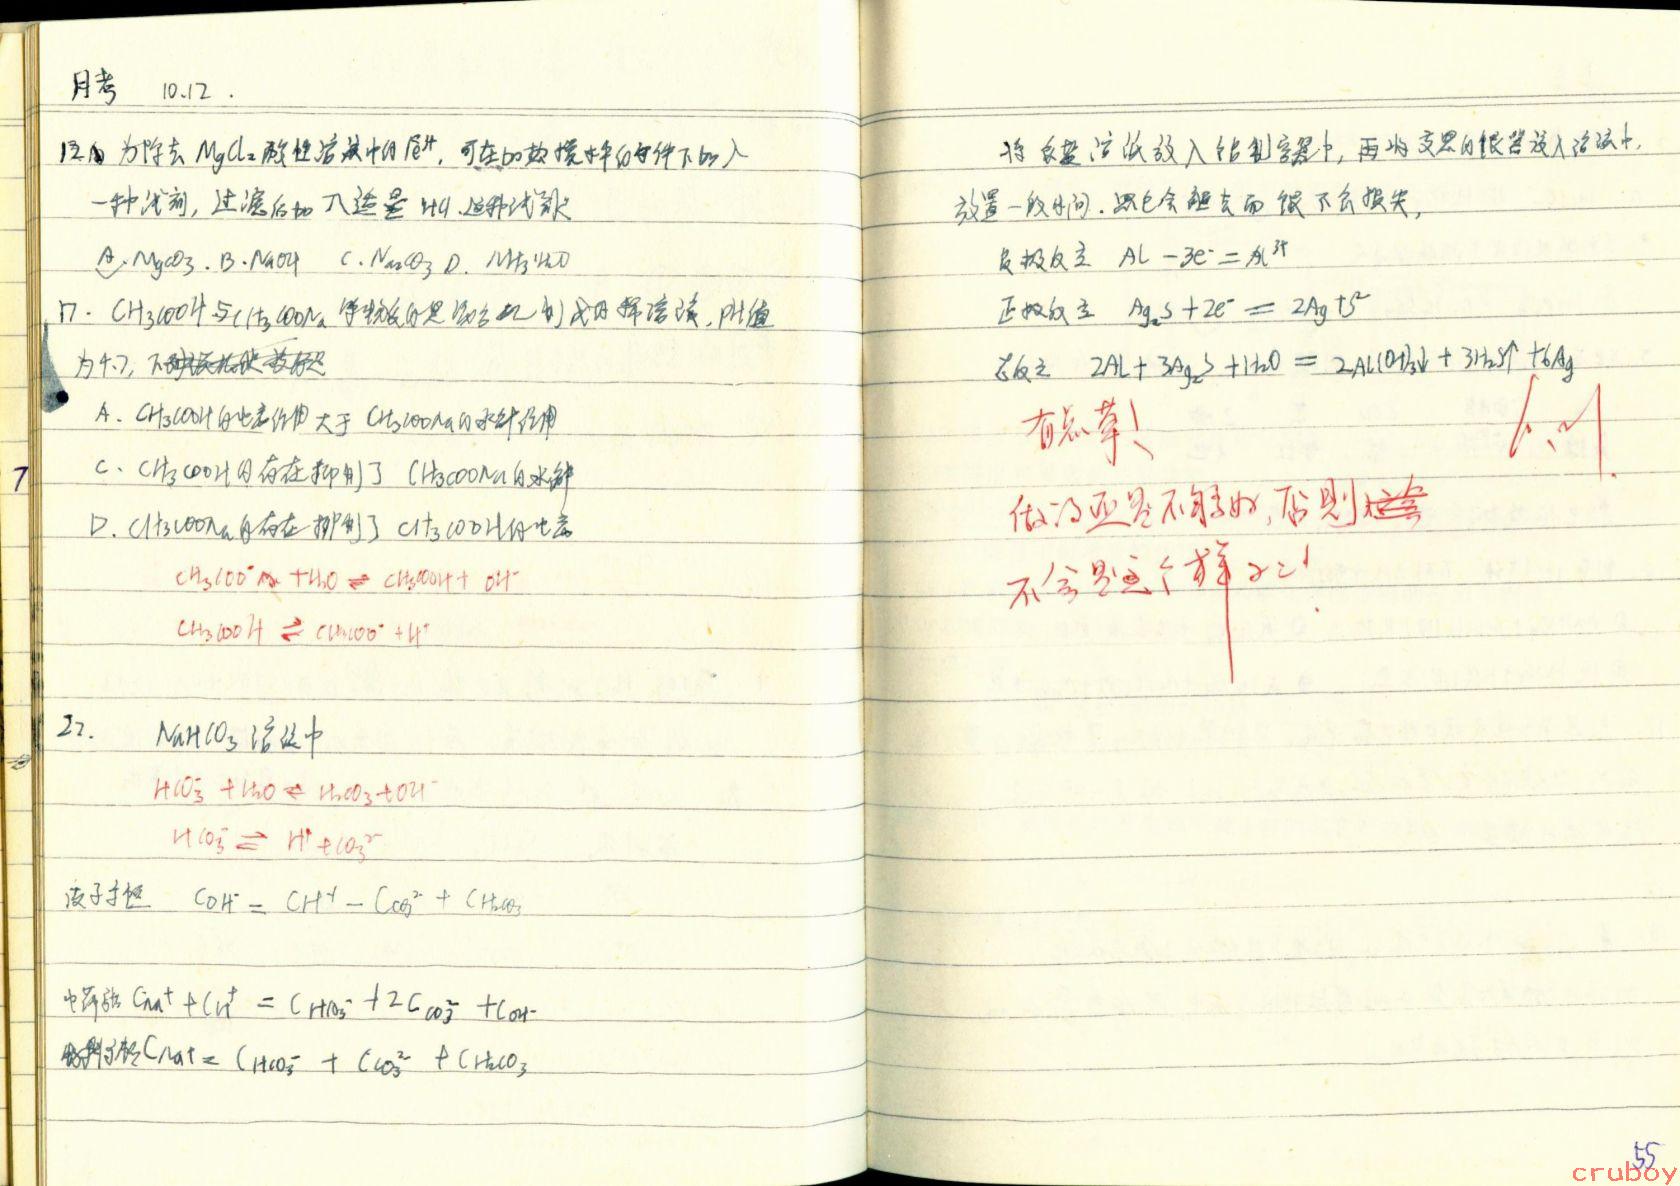 月考 10.12.
12. 为除去 MgCl2 酸性溶液中的Fe3+, 可在加热搅拌的条件下加入
一种试剂, 过滤后加入适量 HCl. 这种试剂
A. MgCO3. B. NaOH C. Na2CO3 D. NH3·H2O
17. CH3COOH与CH3COONa 等物质的量混合 制成的稀溶液, pH值
为4.7, 下
A. CH3COOH的电离作用大于CH3COONa的水解作用
C. CH3COOH的存在抑制了 CH3COONa的水解
D. CH3COONa的存在抑制了 CH3COOH的电离
CH3COO- + H2O ⇌ CH3COOH + OH-
CH3COOH ⇌ CH3COO- + H+
22. NaHCO3 溶液中
HCO3- + H2O ⇌ H2CO3 + OH-
HCO3- ⇌ H+ + CO32-
质子守恒 COH- = CH+ - CCO32- + CH2CO3
电荷守恒 CNa+ + CH+ = CHCO3- + 2CCO32- + COH-
物料守恒 CNa+ = CHCO3- + CCO32- + CH2CO3
将食盐溶液放入铝制容器中, 再将变黑的银器浸入溶液中,
放置一段时间. 黑色会褪去而银不会损失,
负极反应 Al - 3e- = Al3+
正极反应 Ag2S + 2e- = 2Ag + S2-
总反应 2Al + 3Ag2S + 6H2O = 2Al(OH)3↓ + 3H2S↑ + 6Ag
有点草!
做得还是不够好, 否则
不会是这个样子!
55
cruboy